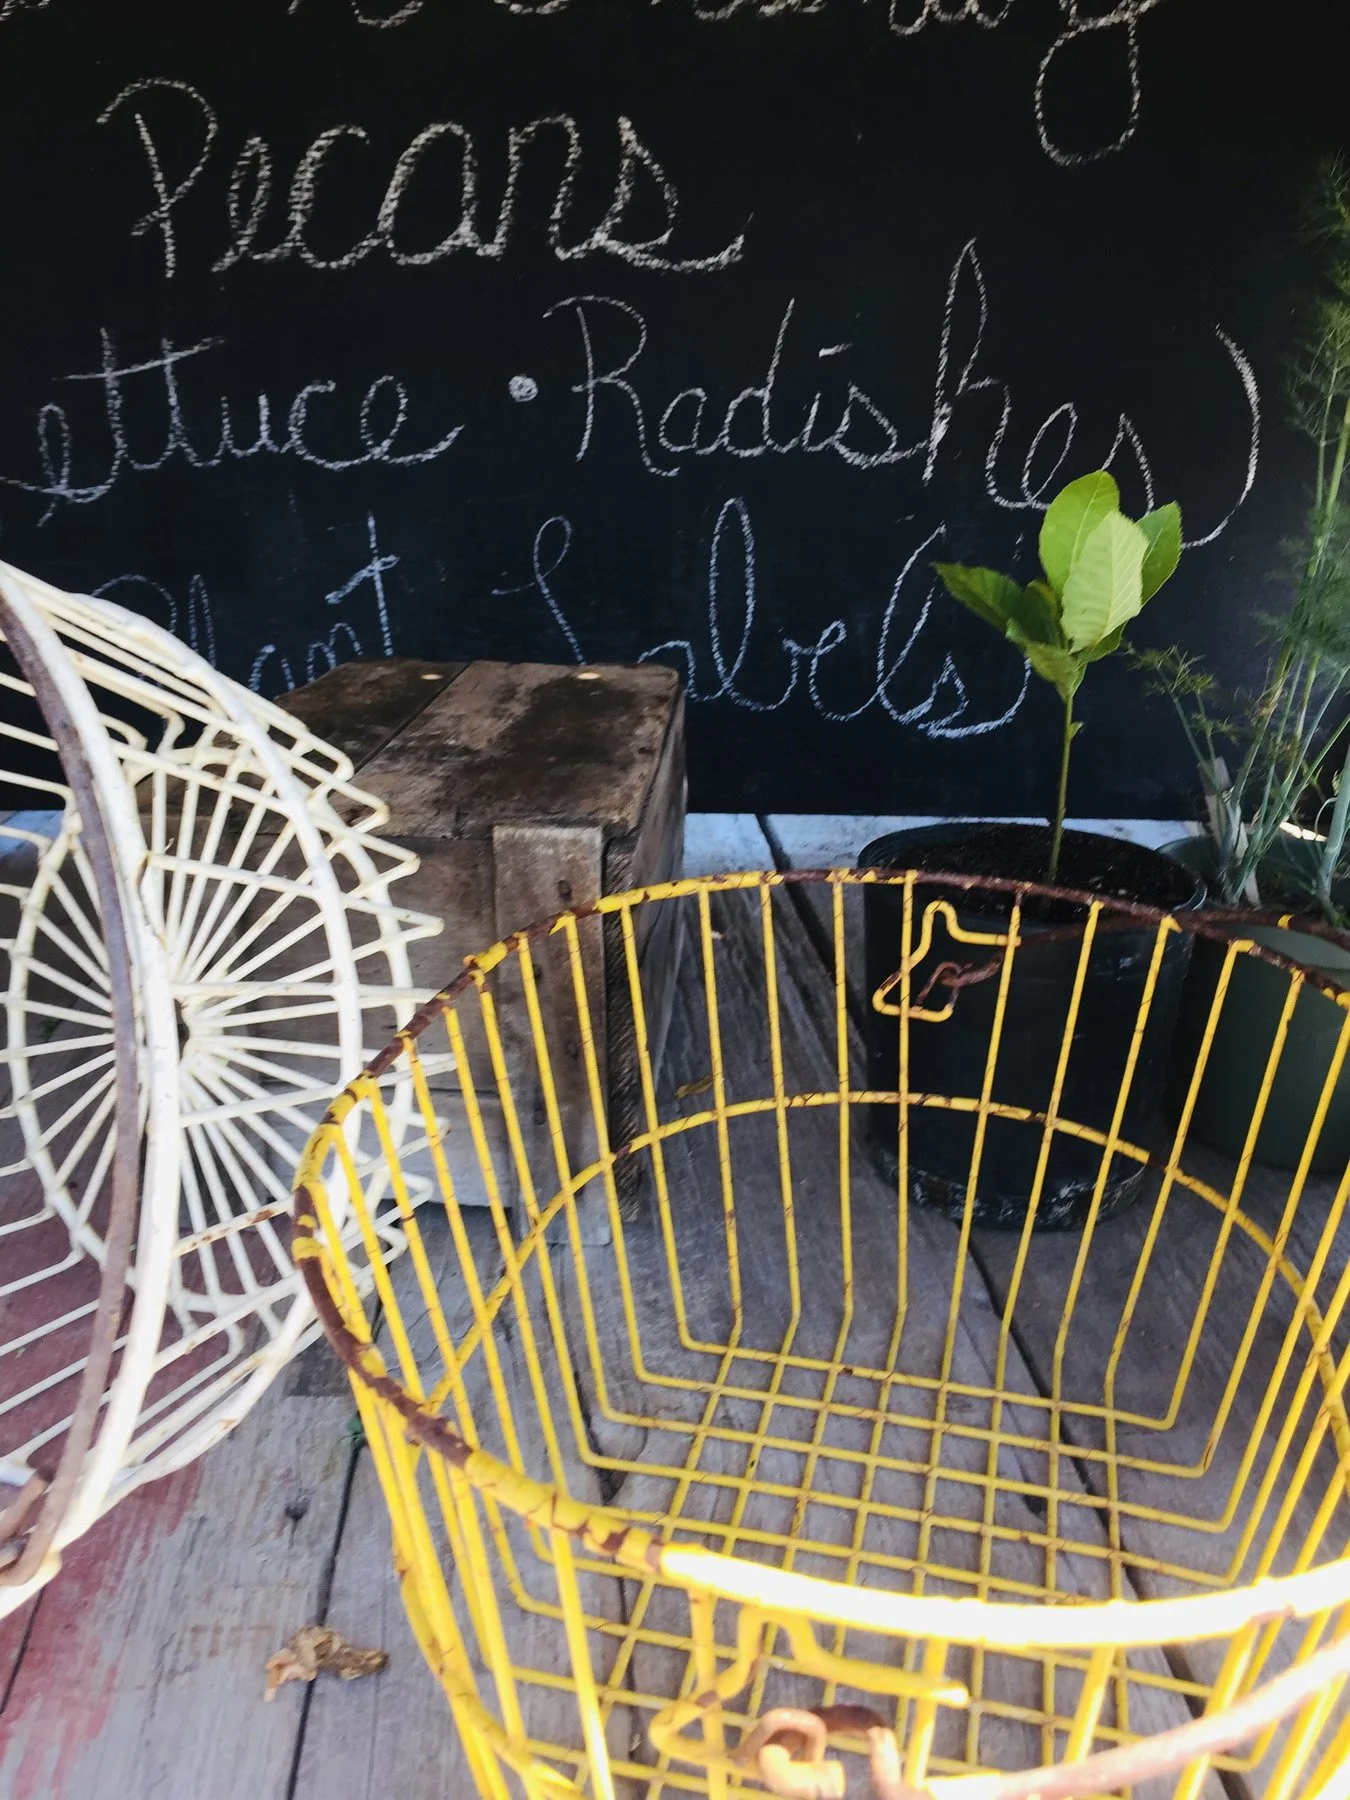 Pecans
Lettuce • Radishes)
Plant Labels